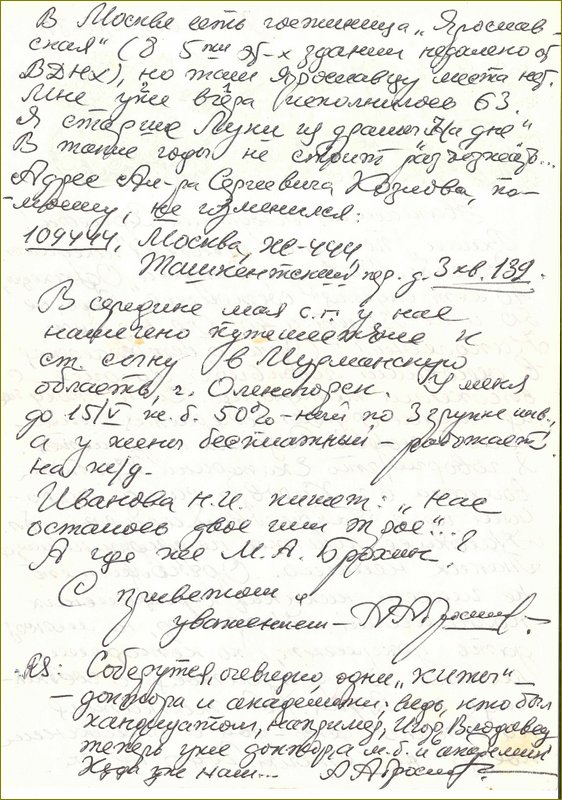 В Москве есть гостиница „Ярослав-
ская“ (в 5ти об-х здании недалеко от
ВДНХ), но там Ярославцу места нет.
Мне уже вчера исполнилось 63.
Я старше Луки из драмы „На дне“
В такие годы не стоит разъезжать...
Адрес Ал-ра Сергеевича Козлова, по-
-моему, не изменился:
109444, Москва, Ж-444,
Ташкентский пер. д. 3 кв. 139.
В середине мая с.г. у нас
намечено путешествие к
ст. сыну в Мурманскую
область, г. Оленегорск. У меня
до 15/V ж.б. 50%-ный по 3 группе инв.,
а у жены бесплатный – работает
на ж/д.
Иванова Н.И. пишет: „нас
осталось двое или трое“...
А где же М.А. Брохин?
С приветом и
уважением –
P.S: Соберутся, очевидно, одни „киты“ –
– доктора и академики; ведь, кто был
кандидатом, например, Игорь
теперь уже доктора м.б. и академики
Куда уж нам...